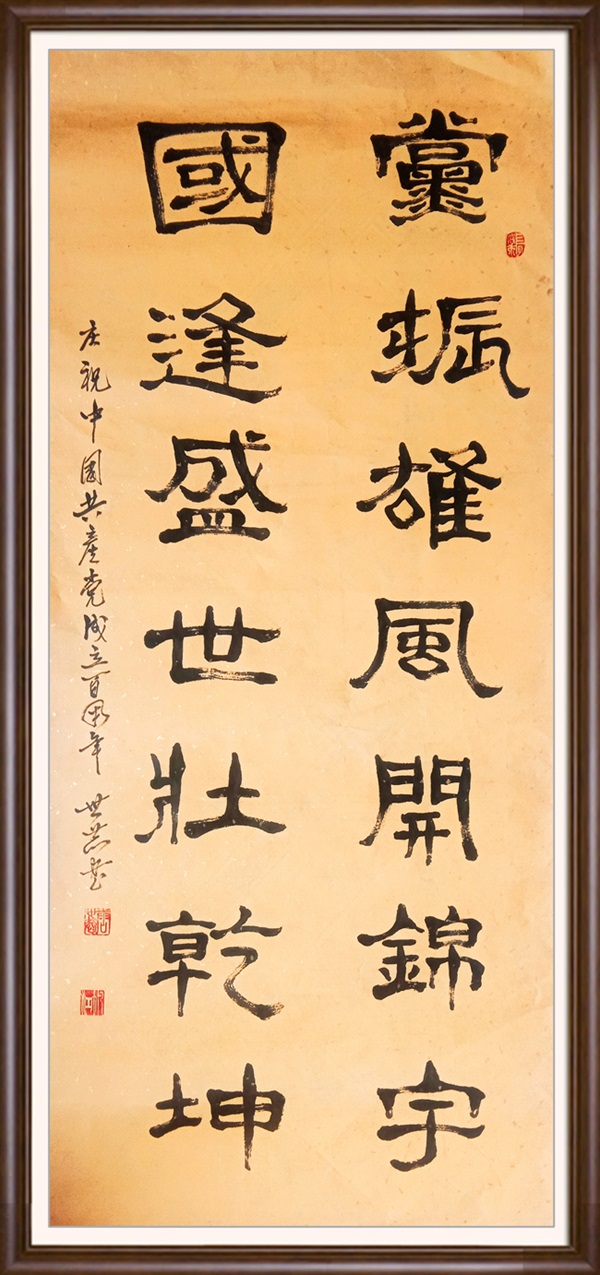 黨振雄風開錦宇
國逢盛世壯乾坤
庆祝中国共產党成立百周年 世芸书